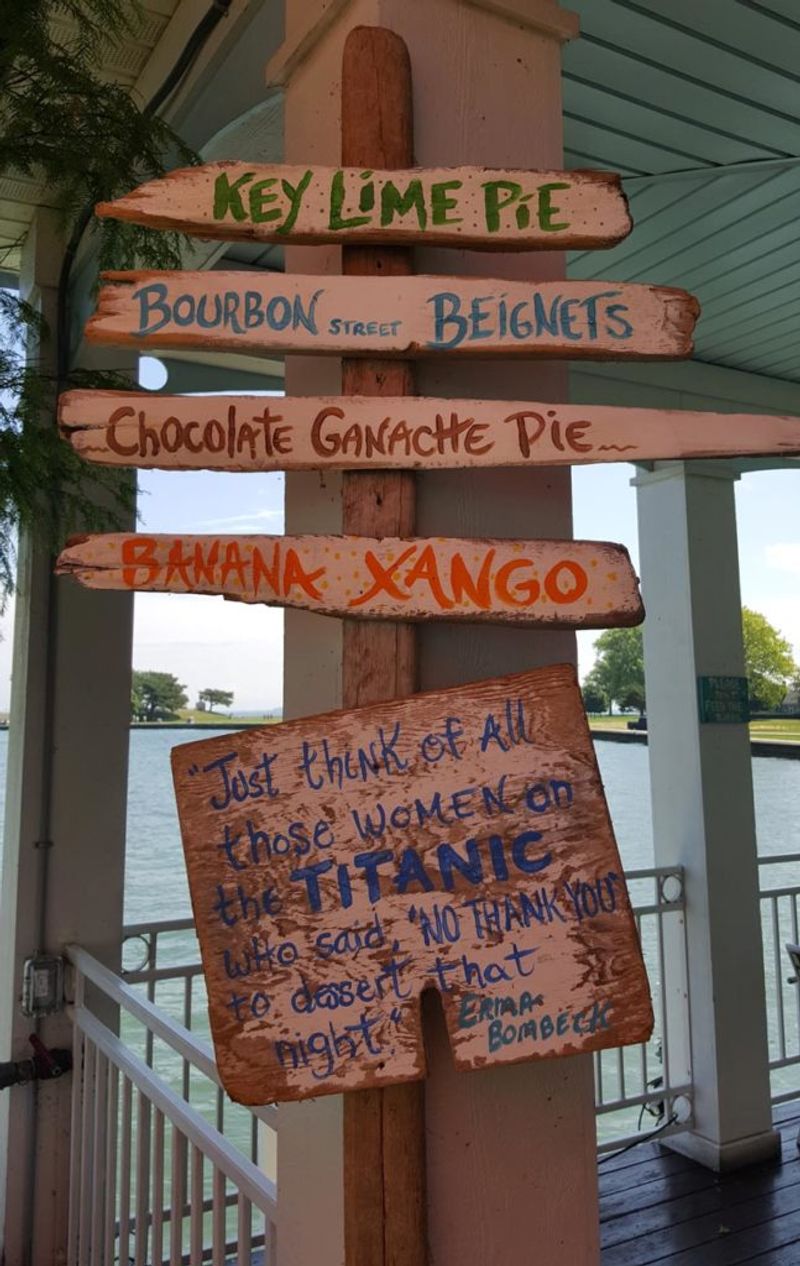 KEY LIME PIE
BOURBON STREET BEIGNETS
Chocolate GANACHE Pie
BANANA XANGO
"Just think of All
those WOMEN on
the TITANIC
who said, "NO THANK YOU"
to dessert that
night."
ERMA
BOMBECK
PLEASE
FEED THE